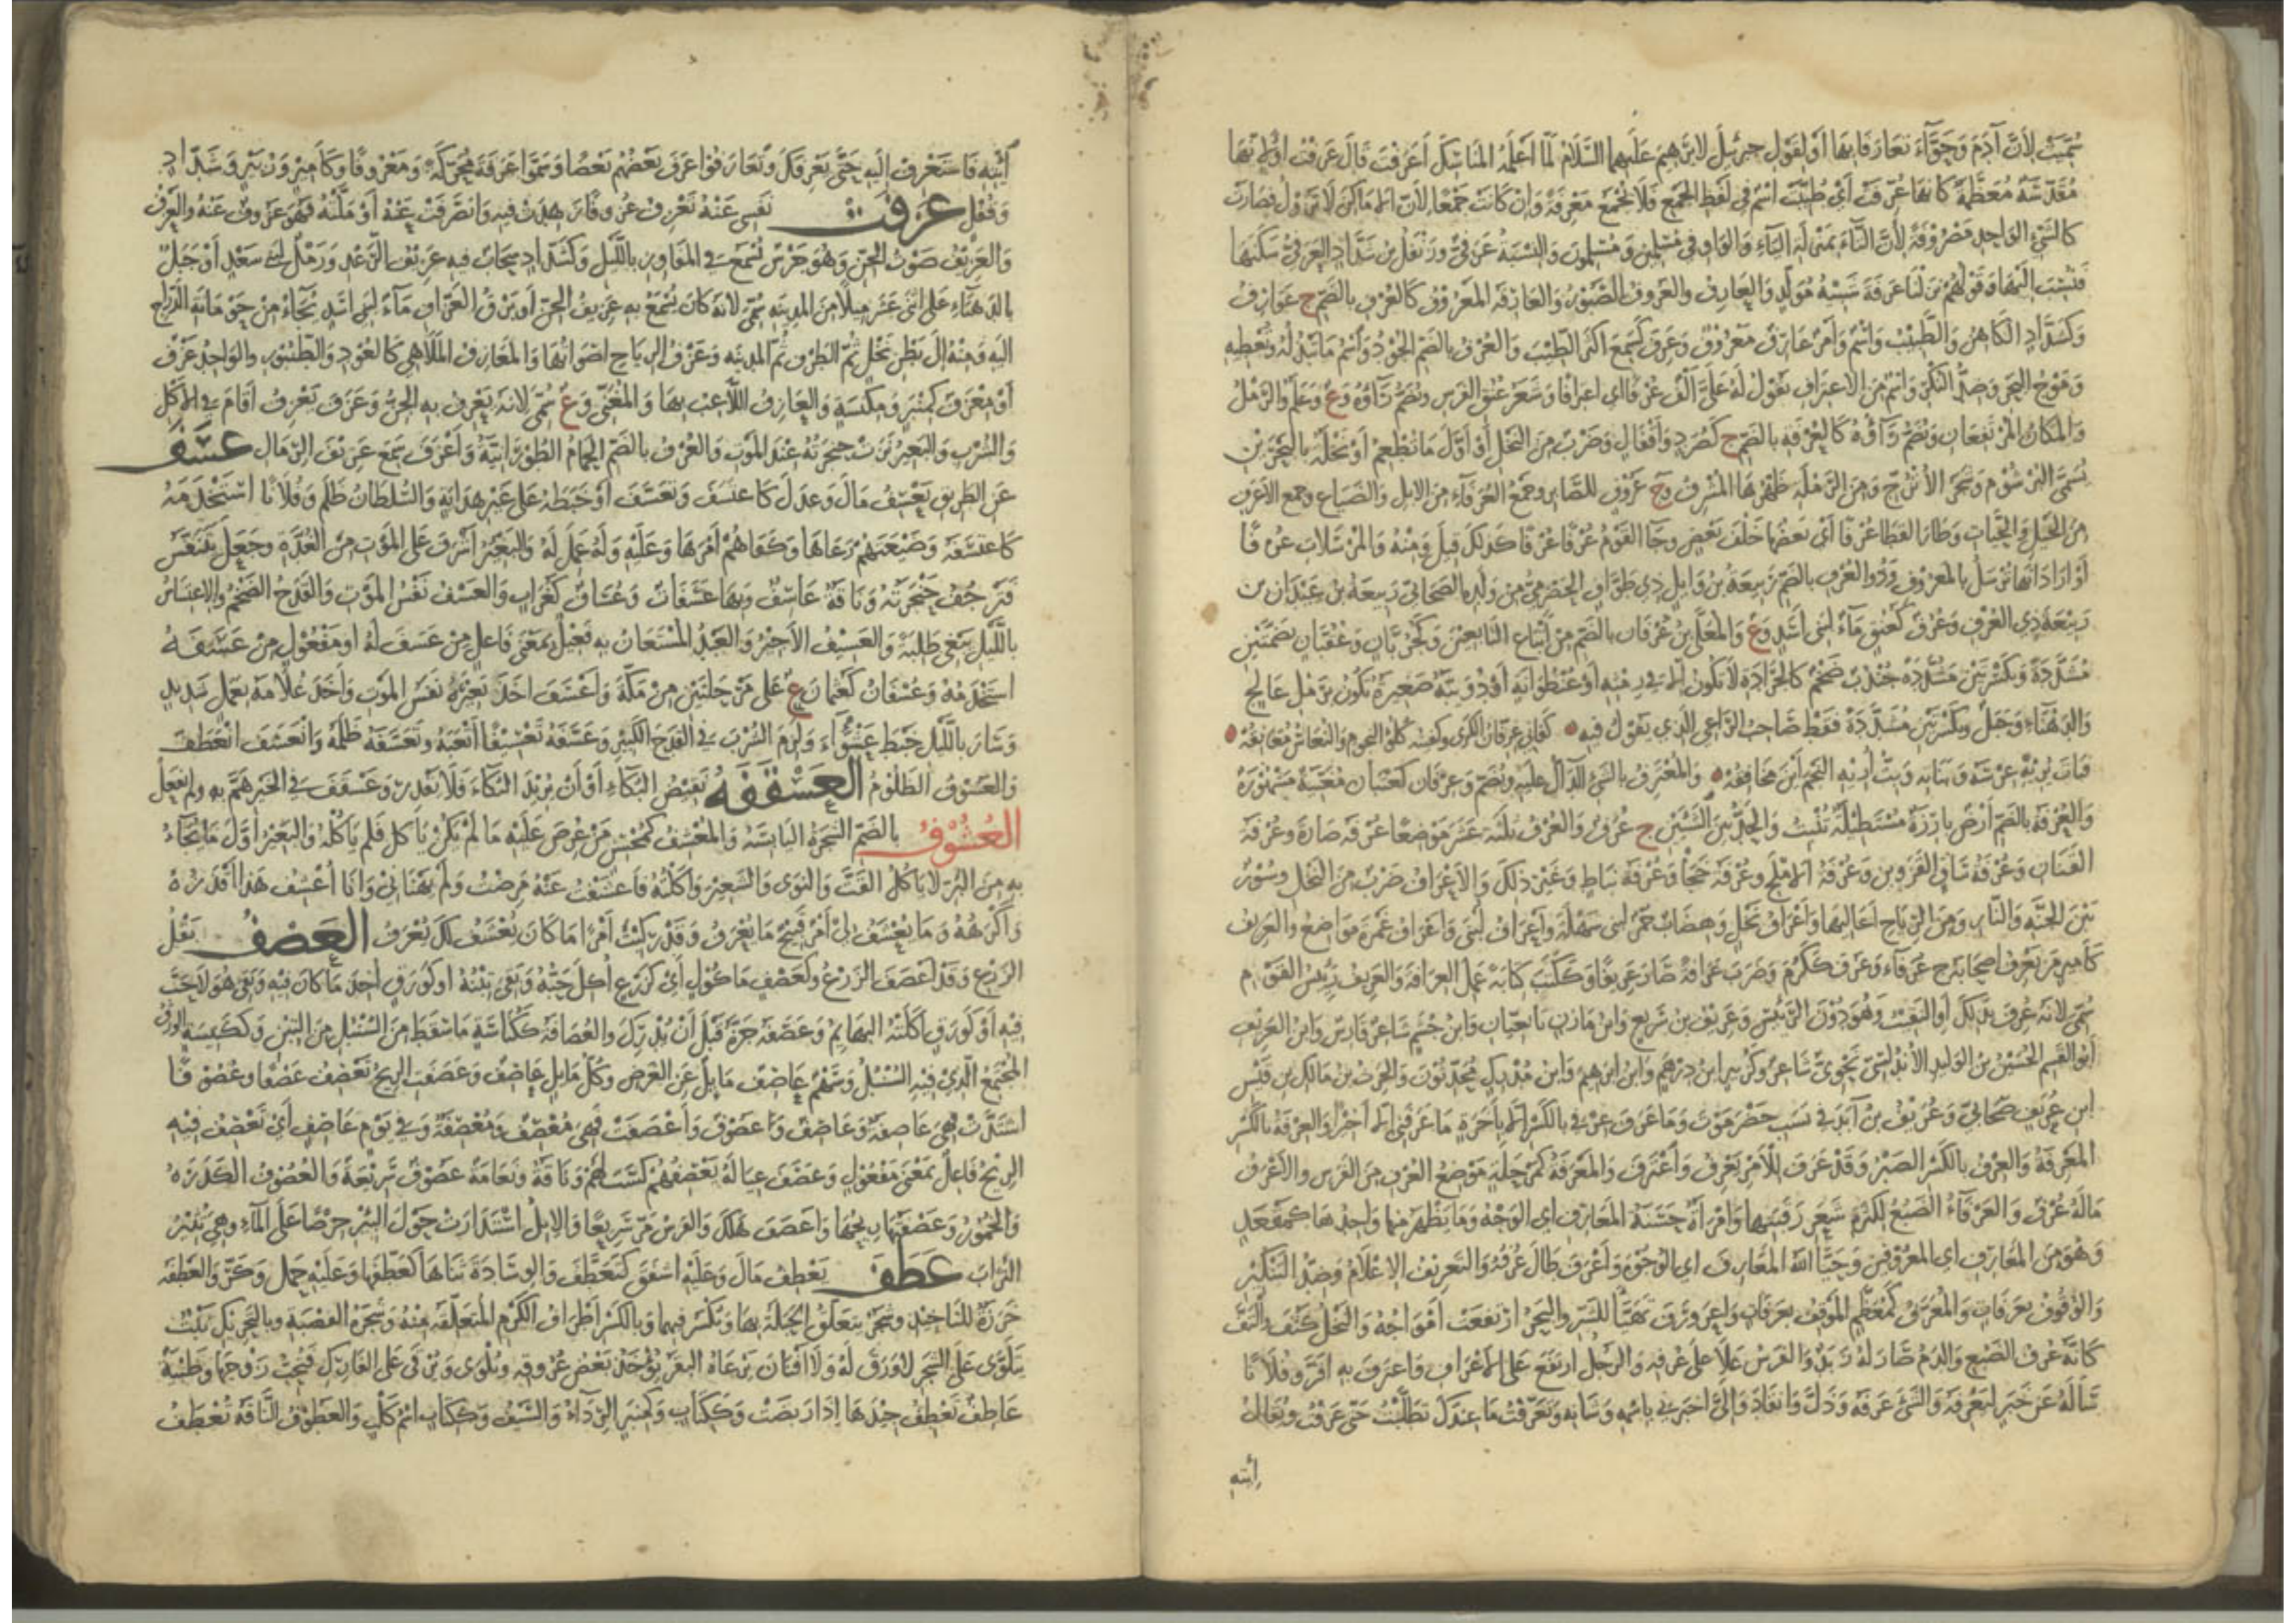 سُمِّيَتْ لِأَنَّ آدَمَ وَحَوَّآءَ تعَارَفَا بِهَا أَوْ لِقَوْلِ جبرئيلَ لِابْرَهِيمَ عَلَيْهِمَا السَّلَامُ لَمَّا أَعْلَمَهُ المَنَاسِكَ أَعَرَفْتَ قَالَ عَرَفْت اوْ لِأنَّهَا
مُقَدَّسَةٌ مُعَظَّمَةٌ كَانهَا عُرِّفَتْ أَيْ طُيِّبَتْ اسْمٌ في لَفْظِ الجَمْعِ فَلَا تُجْمَعُ مَعْرِفَةٌ وَإنْ كَانَتْ جَمْعًا لِأنَّ الامَاكِنَ لَا تَزُولُ فصَارَتْ
كالشَّيْءِ الوَاحِدِ مَصْرُوفَةٌ لِأنَّ التَّآءَ بمَنْزِلَةِ اليَآءِ وَالوَاوِ في مُسْلِمِينَ وَمُسْلِمُونَ وَالنِّسْبَةُ عَرَفيٌّ وزَنْفَلُ بنُ شَدَّادٍ العَرَفيُّ سَكَنَهَا
فَنُسِبَ اليْهَا وَقَوْلُهُمْ نَزَلْنَا عَرَفَةَ شَبِيْهُ مُوَلَّدٍ وَالعَارِفُ والعَرُوفُ الصَّبُوْرُ وَالعَارِفَة المَعْرُوْفُ كَالعُرْفِ بالضَّمِّ ج عَوَارِفُ
وَكشَدَّادٍ الكَاهِنُ وَالطَّبِيْبُ وَاسْمٌ وَأمْرٌ عَارِفٌ مَعْرُوْفٌ وَعَرِفَ كَسَمِعَ اكثَرَ الطِّيْبَ وَالعُرْفُ بالضَّمِّ الجُوْدُ وَاسْمُ مَا تَبْذُلُهُ وتُعْطِيهِ
وَمَوْجُ البَحْرِ وَضِدُّ النُّكْرِ وَاسْمٌ مِنَ الاعْتِرَافِ تَقُولُ لهُ عَلَيَّ ألْفٌ عُرْفًا اي اعترَافًا وَشَعَرُ عُنُقِ الفَرَسِ وتُضَمُّ رَآؤُهُ وَع وَعَلَمٌ وَالرَّمْلُ
وَالمَكَانُ المُرْتَفِعَانِ وَتُضَمُّ رَآؤُهُ كَالعُرْفَةِ بالضَّمِّ ج كَصُرَدٍ وَأقْفَالٍ وَضَرْبٌ مِنَ النَّخْلِ أوْ أوَّلُ مَا تُطْعِمُ أوْ نَخْلَةٌ بِالبَحْرَيْنِ
تُسَمَّى البُرْشُوْمَ وَشَجَرُ الأُتْرُجِّ وَمِنَ الرَّمْلَةِ ظَهْرُهَا المُشْرِفُ وَج عَرُوْفٍ للصَّابِرِ وجَمْعُ العَرْفَاءِ مِنَ الابِلِ وَالضِّبَاعِ وجمع الأعْرَفِ
مِنَ الخَيْلِ وَالحَيَّاتِ وَطَارَ القَطَا عُرْفًا أيْ بَعْضُهَا خَلْفَ بَعْضٍ وجَآ القَوْمُ عُرْفًا عُرْفًا كَذلِكَ قِيلَ وَمِنْهُ وَالمُرْسَلَاتِ عُرْفًا
أوْ ارَادَ انهَا تُرْسَلُ بالمَعْرُوفِ وَذُو العُرْفِ بالضَّمِّ رَبِيْعَةُ بْنُ وَايِلٍ ذِي طَوَّافٍ الحَضْرَمِيُّ مِنْ وَلَدِهِ الصَّحَابيُّ رَبِيعَةُ بنُ عَيْدَانَ بن
رَبِيْعَةَ ذِي العُرْفِ وَعُرُفٌ كَعُنُقٍ مَآءٌ لبَني أسَدٍ وَع وَالمُعَلَّى بنُ عُرْفَانَ بالضَّمِّ مِنْ أتْبَاعِ التَّابِعِيْنَ وَكَجُرُبَّانٍ وَعُفُتَّانٍ بضَمَّتَيْنِ
مُشَدَّدَةً وَبكَسْرَتَيْنِ مُشَدَّدَةً جُنْدَبٌ ضَخْمٌ كَالجَرَادَةِ لَا تَكُونُ إلَّا في رِمْثَةٍ أوْ عُنْظُوَانَةٍ أوْ دُوَيْبَّةٌ صَغِيرَةٌ تَكُونُ بِرَمْلِ عَالِجٍ
وَالدَّهْنَآءِ وَجَبَلٌ وبِكسْرَتَيْنِ مُشَدَّدَةً فقَطْ صَاحِبُ الرَّاعِي الذِي يَقُوْلُ فِيهِ كَفَاني عِرِفَّانُ الكَرَى وكَفَيْتُهُ كُلُوْءَ النجومِ وَالنُّعَاسُ مُعَانِقُهْ
فَبَاتَ يُرِيْهِ عِرْسَهُ وَبَنَاتِهِ وَبِتُّ أُرِيْهِ النَّجْمَ أيْنَ مخَافِقُهْ وَالمُعْتَرِفُ بالشَّيْءِ الدَّالُّ عَلَيْهِ وتُضَمُّ وَعِرْفَانُ كعِتْبَانَ مُغَنِّيَةٌ مَشْهُوْرَةٌ
وَالعُرْفَةُ بالضَّمِّ أرْضٌ بَارِزَةٌ مُسْتَطِيْلَةٌ تُنْبِتُ وَالحَدُّ بَيْنَ الشَّيْئَيْنِ ج عُرَفٌ وَالعُرَفُ ثلثَة عَشَرَ مَوْضِعًا عُرْفَة صَارَةَ وعُرْفَة
القَنَانِ وَعُرْفَةُ سَاقِ الفَرْوِينِ وَعُرْفَةُ الامْلَحِ وَعُرْفَة خَجَأ وَعُرْفَة نِبَاطٍ وَغَيْرُ ذلِكَ وَالأعْرَافُ ضَرْبٌ مِنَ النَّخْلِ وسُوْرٌ
بَيْنَ الجَنَّةِ وَالنَّارِ وَمِنَ الرِّيَاحِ أعَالِيْهَا وَأعْرَافُ نَخْلٍ وَهِضَابٌ حُمْرٌ لبَني سَهْلَةَ وَأعْرَافُ لُبْنَى وَاعْرَافُ غَمْرَةَ مَوَاضِعُ وَالعَرِيفُ
كَأمِيرٍ مَنْ يُعَرِّفُ اصحَابَهُ ج عُرَفَآءُ وَعَرُفَ كَكَرُمَ وَضَرَبَ عَرَافَةً صَارَ عَرِيفًا وَكَكَتَبَ كِتَابَةً عَمِلَ العِرَافَةَ وَالعَرِيفُ رَئِيْسُ القَوْمِ
سُمِّيَ لأنَّهُ عُرِفَ بذلِكَ أوِ النَّقِيْبُ وَهُوَ دُوْنَ الرَّئِيْسِ وَعَرِيْفُ بن سَرِيعٍ وابْنُ مَازِنٍ تَابعِيَّانِ وَابنُ جُشَمٍ شَاعِرٌ فَارِسٌ وَابنُ العَرِيْفِ
أبُو القٰسِمِ الحُسَيْنُ بْنُ الوَلِيْدِ الأَنْدَلُسِيُّ نَحْوِيٌّ شَاعِرٌ وَكَزُبَيْرٍ ابنُ دِرْهَمٍ وَابنُ ابْرَهِيمَ وَابنُ مُدْرِكٍ مُحَدِّثُوْنَ وَالحَرِثُ بْنُ مَالِكِ بنِ قَيْسِ
ابنِ عُرَيْفٍ صَحَابيٌّ وَعُرَيْفُ بْنُ آبَدَ في نَسَبِ حَضْرَمَوْتَ وَمَا عَرَفَ عِرْفي بالكَسْرِ الَّا بِأَخَرَةٍ مَا عَرَفَني الَّا أخِيْرًا وَالعِرْفَةُ بالكَسْرِ
المَعْرِفَةُ وَالعِرْفُ بالكَسْرِ الصَّبْرُ وَقَدْ عَرَفَ لِلْأَمْرِ يَعْرِفُ وَاعْتَرَفَ وَالمَعْرَفَةُ كَمَرْحَلَةٍ مَوْضِعُ العُرْفِ مِنَ الفَرَسِ والأعْرَفُ
مَالهُ عُرْفٌ وَالعَرْفَآءُ الضَّبُعُ لِكَثْرَةِ شَعَرِ رَقَبَتِهَا وَامْرَأَةٌ حَسَنَةُ المَعَارِفِ اي الوَجْهِ وَمَا يَظْهَرُ مِنْهَا وَاحِدُهَا كَمَقْعَدٍ
وَهُوَ مِنَ المَعَارِفِ اي المَعْرُوْفِيْنَ وَحَيَّا اللّٰهُ المَعَارِفَ اي الوُجُوْهَ وَأعْرَفَ طَالَ عُرْفُهُ وَالتَّعْرِيْفُ الاِعْلَامُ وَضِدُّ التَّنْكِيْرِ
وَالوُقُوْفُ بعَرَفَاتٍ وَالمُعَرَّفُ كَمُعَظَّمٍ المَوْقِفُ بعَرَفَاتٍ وَاعْرَوْرَفَ تَهَيَّأَ لِلشَّرِّ وَالبَحْرُ ارْتَفَعَتْ أمْوَاجُهُ وَالنَّخْلُ كَثُفَ وَالْتَفَّ
كَانَّهُ عُرْفُ الضَّبُعِ وَالدَّمُ صَارَ لَهُ زَبَدٌ وَالفَرَسَ عَلَا عَلَى عُرْفِهِ وَالرَّجُلُ ارتَفَعَ عَلَى الاعْرَافِ وَاعتَرَفَ بِهِ اقَرَّ وَفُلَانًا
سَألَهُ عَنْ خَبَرٍ لِيَعْرِفَهُ وَالشَّيْءَ عَرَفَهُ وَذَلَّ وَانقَادَ وَالَيَّ اخبَرَني باسْمِهِ وَشَانِهِ وَتَعَرَّفْتُ مَا عِندَكَ تَطَلَّبْتُ حَتَّى عَرَفْتُ ويُقَالُ
إئْتِهِ
ائْتِهِ فَاسْتَعْرِفْ الَيهِ حَتَّى يَعْرِفَكَ وَتَعَارَفُوا عَرَفَ بَعْضُهُمْ بَعْضًا وَسَمَّوا عَرَفَةَ مُحَرَّكَةً وَمَعْرُوفًا وَكَأَمِيرٍ وَزُبَيْرٍ وَشَدَّادٍ
وَقُفْلٍ عَزَفَتْ نَفْسِي عَنْهُ تَعْزِفُ عُزُوفًا زَهِدَتْ فيهِ وَانصَرَفَتْ عَنْهُ أوْ مَلَّتْهُ فهُوَ عَزُوفٌ عَنْهُ والعَزْفُ
وَالعَزِيْفُ صَوْتُ الجِنِّ وَهُوَ جَرْسٌ يُسْمَعُ في المَفَاوِزِ باللَّيْلِ وَكشَدَّادٍ سَحَابٌ فيهِ عَزِيْفُ الرَّعْدِ وَرَمْلٌ لبَني سَعْدٍ أوْ جَبَلٌ
بالدَّهْنَآءِ عَلَى اثْنَيْ عَشَرَ مِيلًا مِنَ المَدِينَةِ سُمِّيَ لأنَّهُ كَانَ يُسْمَعُ بهِ عَزِيفُ الجِنِّ أو بَرْقُ العَزَّافِ مَآءٌ لبَني أسَدٍ يُجَآءُ مِنْ حَوْمَانَةِ الدَّرَّاجِ
اليهِ وَمِنْهُ إلَى بَطْنِ نَخْلٍ ثُمَّ الطَّرَفِ ثُمَّ المدينَةِ وَعَزْفُ الرِّيَاحِ اصْوَاتُهَا وَالمَعَازِفُ المَلَاهِي كَالعُوْدِ وَالطُّنْبُوْرِ والوَاحِدُ عَزْفٌ
أوْ مِعْزَفٌ كَمِنْبَرٍ ومِكْنَسَةٍ وَالعَازِفُ اللَّاعِبُ بهَا وَالمُغَنِّي وَع سُمِّيَ لأنَهُ يَعْزِفُ بهِ الجِنُّ وَعَزَفَ يَعْزِفُ أقَامَ في الأكْلِ
وَالشُّرْبِ وَالبَعِيْرُ نَزَتْ حَنجَرَتُهُ عِنْدَ المَوْتِ وَالعُزْفُ بالضَّمِّ الحَمَامُ الطُّوْرَانِيَّةُ وَأعْزَفَ سَمِعَ عَزِيْفَ الرِّمَالِ عَسَفَ
عَنِ الطَّرِيقِ يَعْسِفُ مَالَ وَعَدَلَ كَاعتَسَفَ وَتَعَسَّفَ أوْ خَبَطَهُ عَلَى غَيْرِ هِدَايَةٍ وَالسُّلْطَانُ ظَلَمَ وَفُلَانًا اسْتَخْدَمَهُ
كَاعتَسَفَهُ وَضَيْعَتَهُمْ رَعَاهَا وَكَفَاهُمْ أمْرَهَا وَعَلَيْهِ وَلَهُ عَمِلَ لَهُ وَالبَعِيْرُ أشْرَفَ عَلَى المَوْتِ مِنَ الغُدَّةِ وَجَعَلَ يَتَنَفَّسُ
فَتَرْجُفُ حَنْجَرَتُهُ وَنَاقَةٌ عَاسِفٌ وَبهَا عَسَفَاتٌ وَعُسَافٌ كَغُرَابٍ وَالعَسْفُ نَفَسُ المَوْتِ وَالقَدَحُ الضَّخْمُ وَالاعتِسَاسُ
باللَّيْلِ يَبْغِي طَلِبَةً وَالعَسِيْفُ الأَجِيْرُ وَالعَبْدُ المُسْتَعَانُ بِهِ فَعِيْلٌ بمَعْنَى فَاعِلٍ مِنْ عَسَفَ لَهُ اوْ مَفْعُوْلٍ مِنْ عَسَفَهُ
اسْتَخْدَمَهُ وَعُسْفَانُ كَعُثْمَانَ ع عَلَى مَرْحَلَتَيْنِ مِنْ مَكَّةَ وَأعْسَفَ اخَذَ بَعِيْرَهُ نَفَسُ المَوْتِ وَأخَذَ غُلَامَهُ بعَمَلٍ شَدِيدٍ
وَسَارَ باللَّيْلِ خَبْطَ عَشْوَآءَ وَلَزِمَ الشُّرْبَ في القَدَحِ الكَبيْرِ وَعَسَّفَهُ تَعْسِيْفًا أتْعَبَهُ وَتَعَسَّفَهُ ظَلَمَهُ وَانْعَسَفَ انْعَطَفَ
وَالعَسُوْفُ الظَّلُوْمُ العَسْقَفَةُ نَقِيْضُ البُكَآءِ أوْ أنْ يُرِيْدَ البُكَآءَ فَلَا يَقْدِرَ وَعَسْقَفَ في الخَيْرِ هَمَّ بهِ ولم يَفْعَلْ
العُشُوْفُ بالضَّمِّ الشَجَرَةُ اليَابسَةُ وَالمُعْشِفُ كَمُحْسِنٍ مَنْ عُرِضَ عَلَيْهِ مَا لَمْ يَكُنْ يَاكلُ فَلَمْ يَأكُلْهُ وَالبَعِيْرُ أوَّلَ مَا يُجَآءُ
بهِ مِنَ البَرِّ لَا يَاكُلُ القَتَّ وَالنَوَى وَالشَعِيْرَ وَأكَلْتُهُ فَاعْشَفْتُ عَنْهُ مَرِضْتُ وَلَمْ يَهْنَأْني وَانَا أُعْشِفُ هَذَا أقْذَرُهُ
وَأكْرَهُهُ وَمَا يُعْشَفُ لِي أمْرٌ قَبِيْحٌ مَا يُعْرَفُ وَقَدْ رَكِبْتَ أمْرًا مَا كَانَ يُعْشَفُ لكَ يُعْرَفُ العَصْفُ بَقْلُ
الزَّرْعِ وَقَدْ أعْصَفَ الزَّرْعُ وكَعَصْفٍ مَاكُوْلٍ أيْ كَزَرْعٍ أُكِلَ حَبُّهُ وَبَقِيَ تِبْنُهُ اوْ كوَرَقٍ اُخِذَ مَا كَانَ فِيْهِ وَبَقِيَ هُوَ لَا حَبَّ
فِيْهِ أوْ كَوَرَقٍ أكَلَتْهُ البهَايِمُ وَعَصَفَهُ جَزَّهُ قَبْلَ أنْ يُدْرِكَ وَالعُصَافَةُ كَكُنَاسَةٍ مَا سَقَطَ مِنَ السُّنْبُلِ مِنَ التِبْنِ وَكَكَنِيْسَةٍ الوَرَقُ
المُجْتَمِعُ الَّذِي فِيْهِ السُّنْبُلُ وَسَهْمٌ عَاصِفٌ مَايِلٌ عَنِ الغَرَضِ وَكُلُّ مَايِلٍ عَاصِفٌ وَعَصَفَتِ الرِيحُ تَعْصِفُ عَصْفًا وعُصُوْفًا
اشْتَدَّتْ فَهِيَ عَاصِفَةٌ وَعَاصِفٌ وَعَصُوْفٌ وَأعْصَفَتْ فَهِيَ مُعْصِفٌ وَمُعْصِفَةٌ وَفي يَوْمٍ عَاصِفٍ أيْ تَعْصِفُ فِيْهِ
الرِّيْحُ فَاعِلٌ بمَعْنَى مَفْعُوْلٍ وَعَصَفَ عِيَالَهُ يَعْصِفُهُمْ كَسَبَ لَهُمْ وَنَاقَةٌ وَنَعَامَةٌ عَصُوْفٌ سَرِيْعَةٌ وَالعُصُوْفُ الكَدَرُ
وَالخُمُوْرُ وَعَصْفَتُهَا رِيحُهَا وَاعصَفَ هَلَكَ وَالفَرَسُ مَرَّ سَرِيْعًا وَالاِبِلُ اسْتَدَارَتْ حَوْلَ البِئْرِ حِرْصًا عَلَى المَآءِ وهِيَ تُثِيْرُ
التُّرَابَ عَطَفَ يَعْطِفُ مَالَ وَعَلَيْهِ اشفَقَ كَتَعَطَّفَ وَالوِسَادَةَ ثَنَاهَا كَعَطَّفَهَا وَعَلَيْهِ حَمَلَ وَكَرَّ وَالعَطْفَة
خَرَزَةٌ للتَّاخِيْذِ وَشَجَرٌ يَتعَلَّقُ الحَبَلَةُ بهَا وَتُكْسَرُ فيهِمَا وَبالكَسْرِ أطْرَافُ الكَرْمِ المُتَعَلِّقَةُ مِنْهُ وَشَجَرَةُ العَصْبَةِ وبالتَّحْرِيْكِ نَبْتٌ
يَتَلَوَّى عَلَى الشَجَرِ لَا وَرَقَ لَهُ وَلَا أفْنَانَ تَرْعَاهُ البَقَرُ يُؤْخَذُ بَعْضُ عُرُوقِهِ وَيُلْوَى وَيُرْقَى عَلَى الفَارِكِ فَتُحِبُّ زَوْجَهَا وَظَبْيَةٌ
عَاطِفٌ تَعْطِفُ جِيْدَهَا إذَا رَبَضَتْ وَكَكِتَابٍ وَكَمِنبَرٍ الرِّدَآءُ وَالسَّيْفُ وَكَكِتَابٍ اسْمُ كَلْبٍ وَالعَطُوْفُ النَّاقَةُ تَعْطِفُ